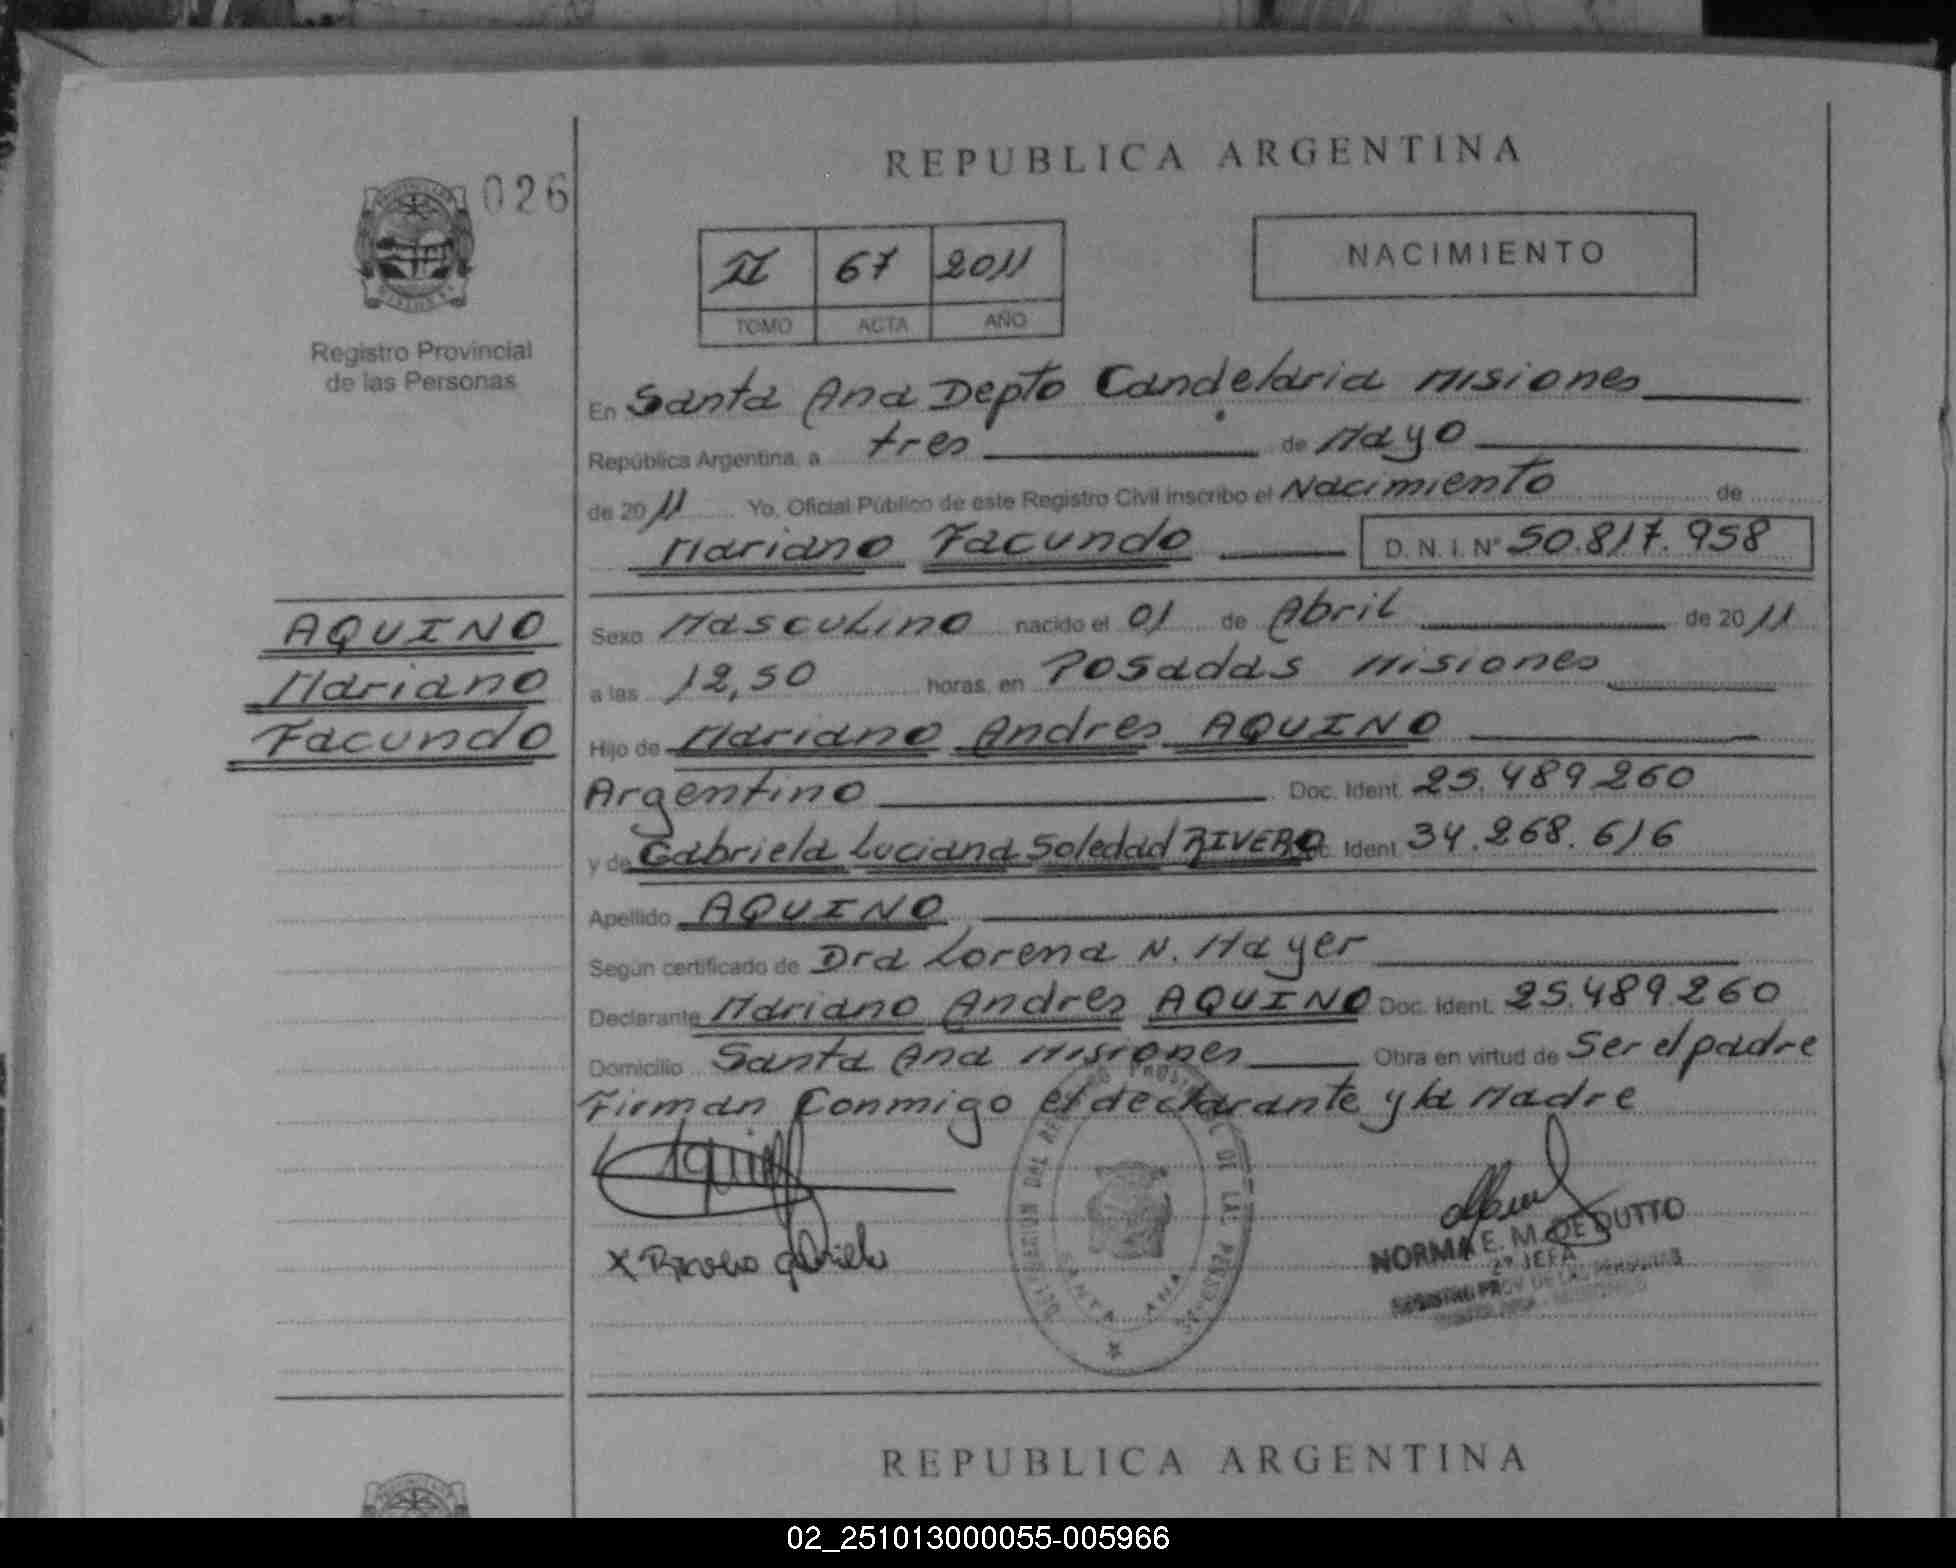 REPUBLICA ARGENTINA
026
Registro Provincial
de las Personas
II 67 2011
TOMO ACTA AÑO
NACIMIENTO
En Santa Ana Depto Candelaria Misiones
República Argentina, a tres de Mayo
de 2011 Yo, Oficial Público de este Registro Civil inscribo el Nacimiento de
Mariano Facundo D. N. I. N° 50.817.958
AQUINO
Mariano
Facundo
Sexo Masculino nacido el 01 de Abril de 2011
a las 12,50 horas, en Posadas Misiones
Hijo de Mariano Andres AQUINO
Argentino Doc. Ident. 25.489.260
y de Gabriela Luciana Soledad RIVERO Doc. Ident. 34.268.616
Apellido AQUINO
Según certificado de Dra Lorena N. Mayer
Declarante Mariano Andres AQUINO Doc. Ident. 25.489.260
Domicilio Santa Ana Misiones Obra en virtud de Ser el padre
Firman Conmigo el declarante y la Madre
DELEGACION DEL REGISTRO PROVINCIAL DE LAS PERSONAS
SANTA ANA
NORMA E. M. DE DUTTO
2° JEFA
REGISTRO PROV. DE LAS PERSONAS
REPUBLICA ARGENTINA
02_251013000055-005966